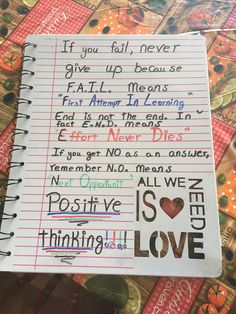 If you fail, never
give up because
F.A.I.L. means
"First Attempt In Learning"
End is not the end. In
fact E.N.D. means
"Effort Never Dies"
If you get NO as an answer,
remember N.O. means
Next Opportunit
Positive
thinking!!!!
ALL WE
NEED
IS
LOVE